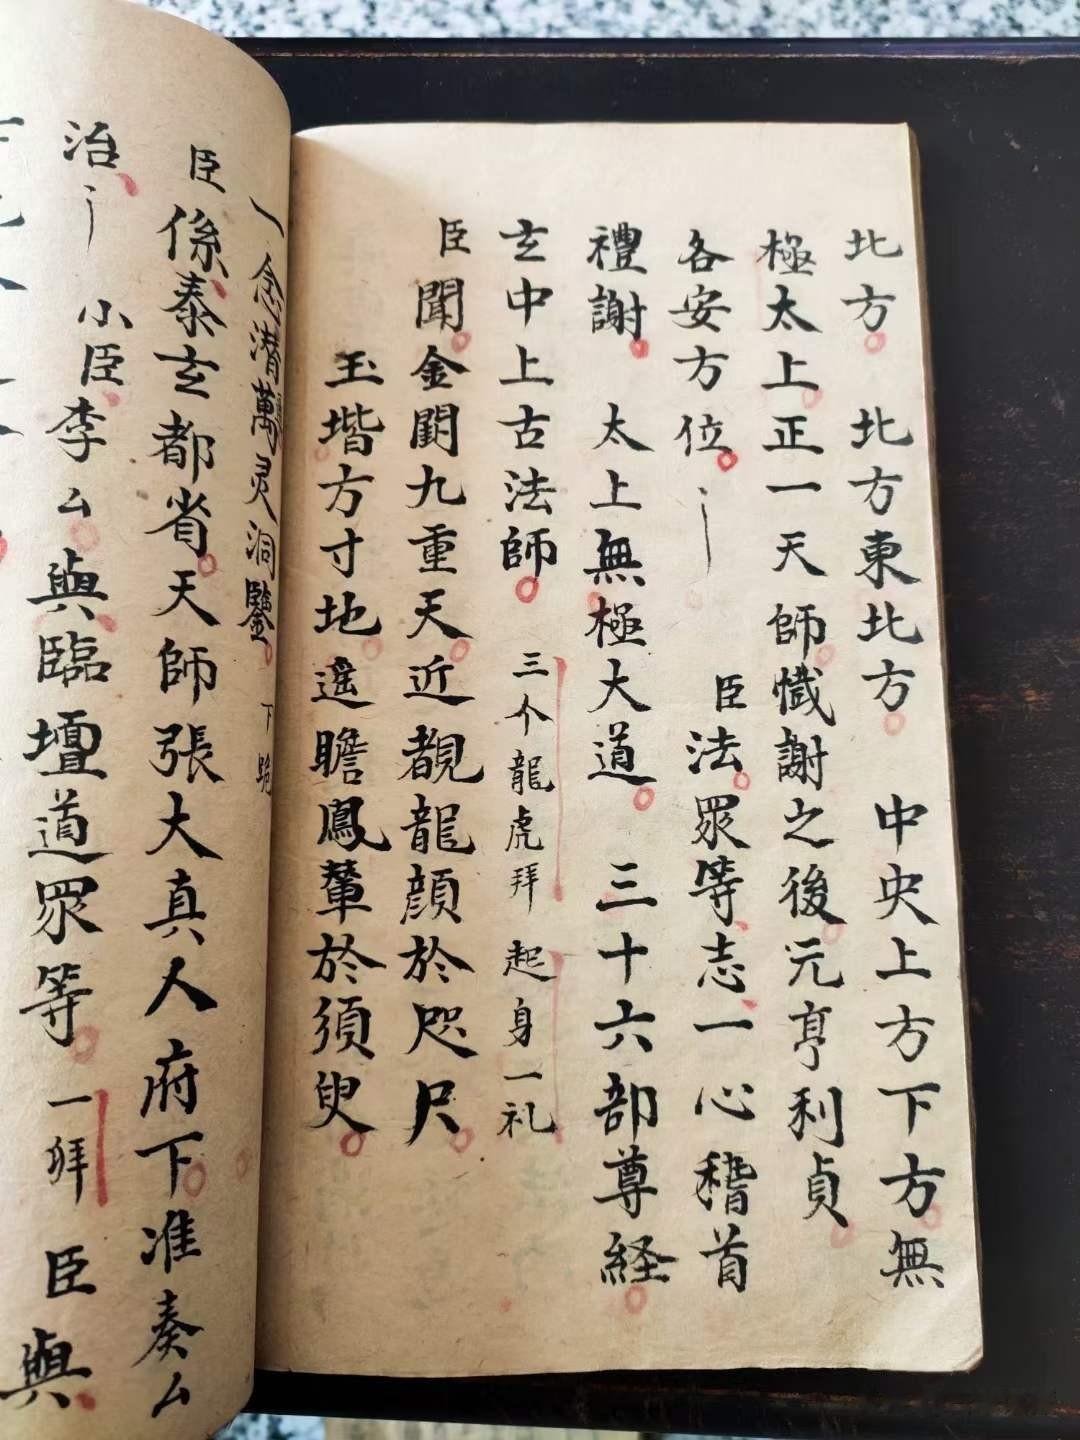 北方 北方東北方 中央上方下方無
極太上正一天師懺謝之後元亨利貞
各安方位 臣法眾等志一心稽首
禮謝 太上無極大道 三十六部尊経
玄中上古法師 三个龍虎拜 起身一礼
臣聞金闕九重天近覩龍顔於咫尺
玉堦方寸地遥瞻鳳輦於須臾
一念潜萬灵洞鑒 下跪
臣係泰玄都省天師張大真人府下准奏厶
治 小臣李厶與臨壇道眾等 一拜 臣與